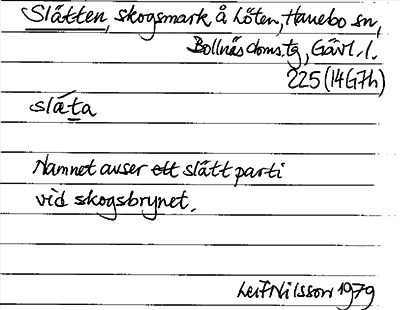 Slätten, skogsmark å Löten, Hanebo sn,
Bollnäs doms.tg, Gävl. l.
225 (14G7h)
slǽta
Namnet avser ett slätt parti
vid skogsbrynet.
Leif Nilsson 1979